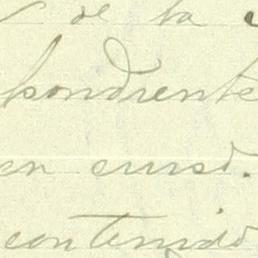 de la
pondiente
en curso.
contenido